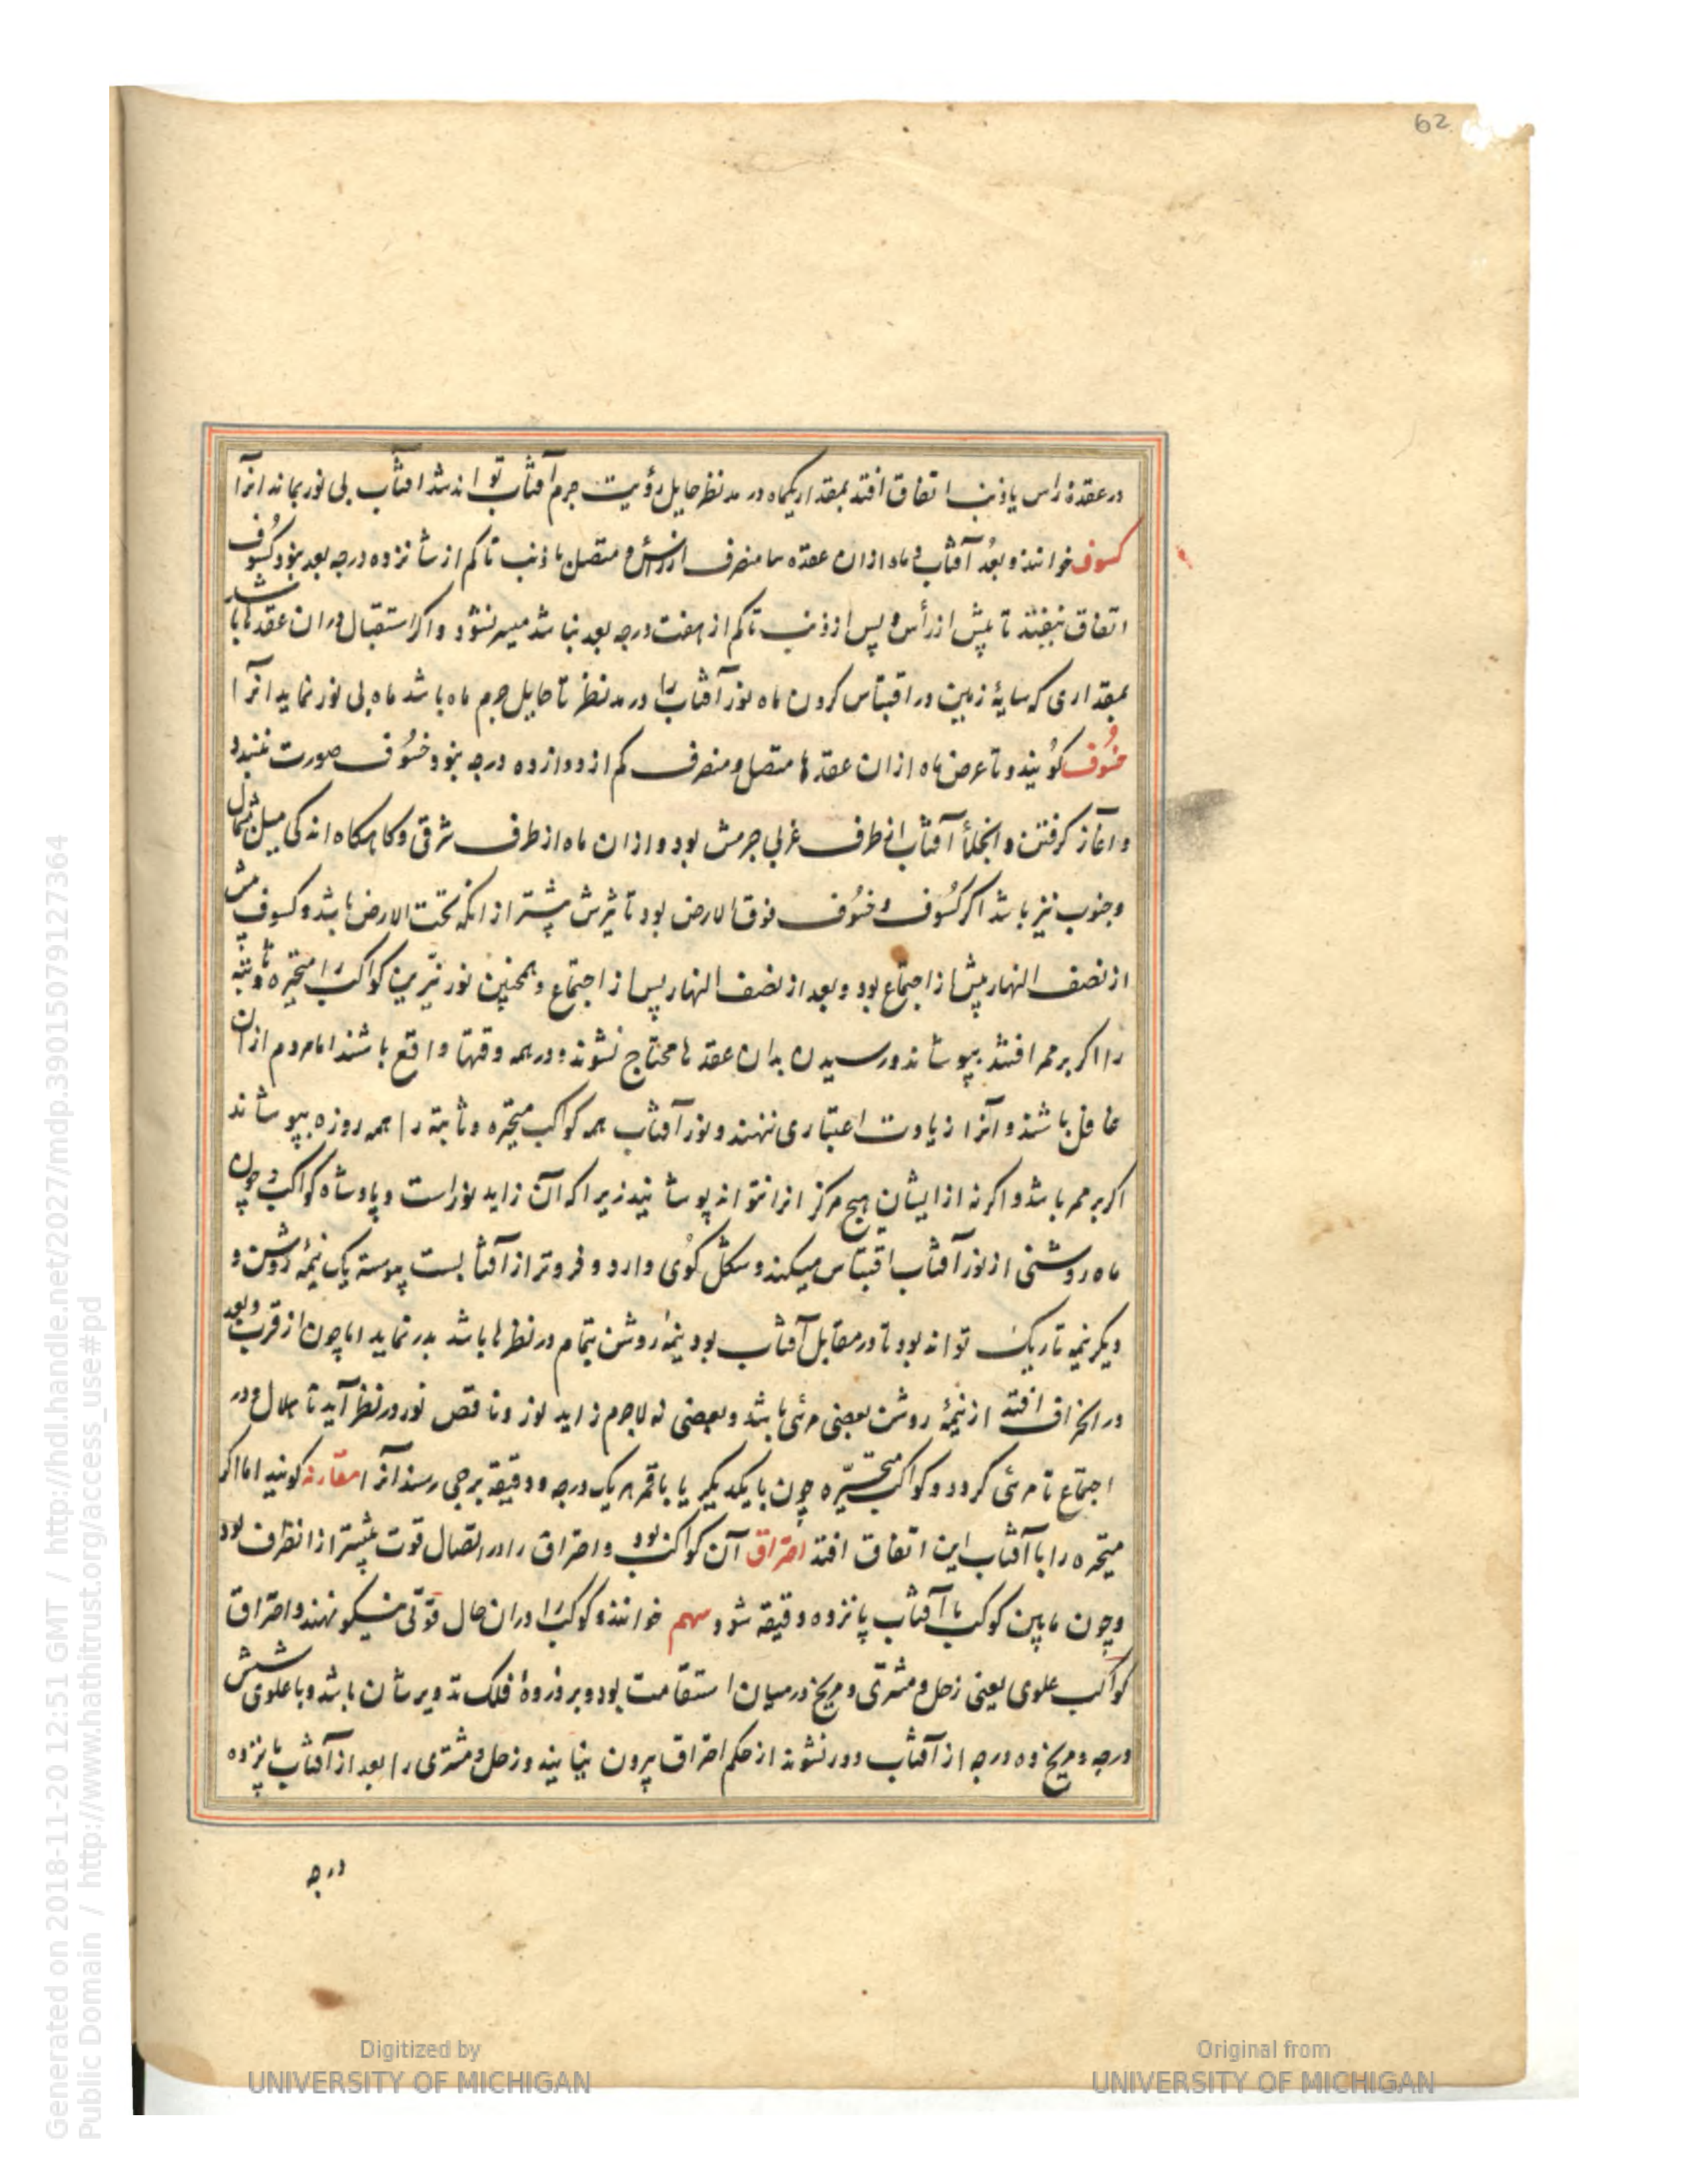 62
در عقدهٔ راس یا ذنب اتفاق افتد بمقداریکه ماه در مد نظر حایل رؤیت جرم آفتاب تواند شد آفتاب بی نور بماند انرا
کسوف خوانند و بعُد آفتاب و ماه ازان عقده ها منصرف از رأس و متصل با ذنب تا کم از شانزده درجه بعد نبود کسُوف
اتفاق نیفتد تا پیش از رأس و پس از ذنب تا کم از هفت درجه بعد نباشد میسر نشود و اگر استقبال دران عقدها باشد
بمقداری که سایهٔ زمین در اقتباس کردن ماه نور آفتاب را در مد نظر تا حایل جرم ماه باشد ماه بی نور نماید انرا
خسُوف گویند و تا عرض ماه ازان عقدها متصل و منصرف کم از دوازده درجه نبود خسُوف صورت نبندد
و آغاز گرفتن و انجلأ آفتاب از طرف غربی جرمش بود و ازان ماه از طرف شرقی و گاه گاه اندکی میل شمال
و جنوب نیز باشد اگر کسُوف و خسُوف فوق الارض بود تاثیرش بیشتر از انکه تحت الارض باشد و کسوف پیش
از نصف النهار پیش از اجتماع بود و بعد از نصف النهار پس از اجتماع و همچنین نور نیّرین کواکب را متحیّره و ثابته
را اگر بر ممر افتند بپوشاند و رسیدن بدان عقدها محتاج نشوند و در همه وقتها واقع باشند اما مردم ازان
غافل باشند و آنرا زیادت اعتباری ننهند و نور آفتاب همه کواکب متحیّره و ثابته را همه روزه بپوشاند
اگر بر ممر باشد و اگر نه ازایشان هیچ هرگز انرا نتواند پوشانید زیرا که آن زاید نور است و پادشاه کواکب و چون
ماه روشنی از نور آفتاب اقتباس میکند و شکل گوی دارد و فروتر از آفتابست پیوسته یک نیمهٔ روشن و
دیگر نیمه تاریک تواند بود تا در مقابل آفتاب بود نیمهٔ روشن بتمام در نظرها باشد بدر نماید اما چون از قرب و بعد
در انحراف افتد از نیمهٔ روشن بعضی مرئی باشد و بعضی نه لاجرم زاید نور و ناقص نور در نظر آید تا هلال و در
اجتماع نامرئی گردد و کواکب متحیّره چون بایکدیگر یا باقمر بر یک درجه و دقیقه برجی رسند انرا مقارنه گویند اما اگر
متحیره را با آفتاب این اتفاق افتد احتراق آن کواکب بود و احتراق را در اتصال قوت بیشتر از انظرف بود
و چون مابین کوکب با آفتاب پانزده دقیقه شود سهم خوانند و کوکب را دران حال قوّتی نیکو نهند و احتراق
کواکب علوی یعنی زحل و مشتری و مریخ در میان استقامت بود و بر ذروهٔ فلک تدویر شان باشد و با علوی شش
درجه و مریخ ده درجه از آفتاب دور نشوند از حکم احتراق بیرون نیایند و زحل و مشتری را بعد از آفتاب پانزده
درجه
Generated on 2018-11-20 12:51 GMT / http://hdl.handle.net/2027/mdp.39015079127364
Public Domain / http://www.hathitrust.org/access_use#pd
Digitized by
UNIVERSITY OF MICHIGAN
Original from
UNIVERSITY OF MICHIGAN